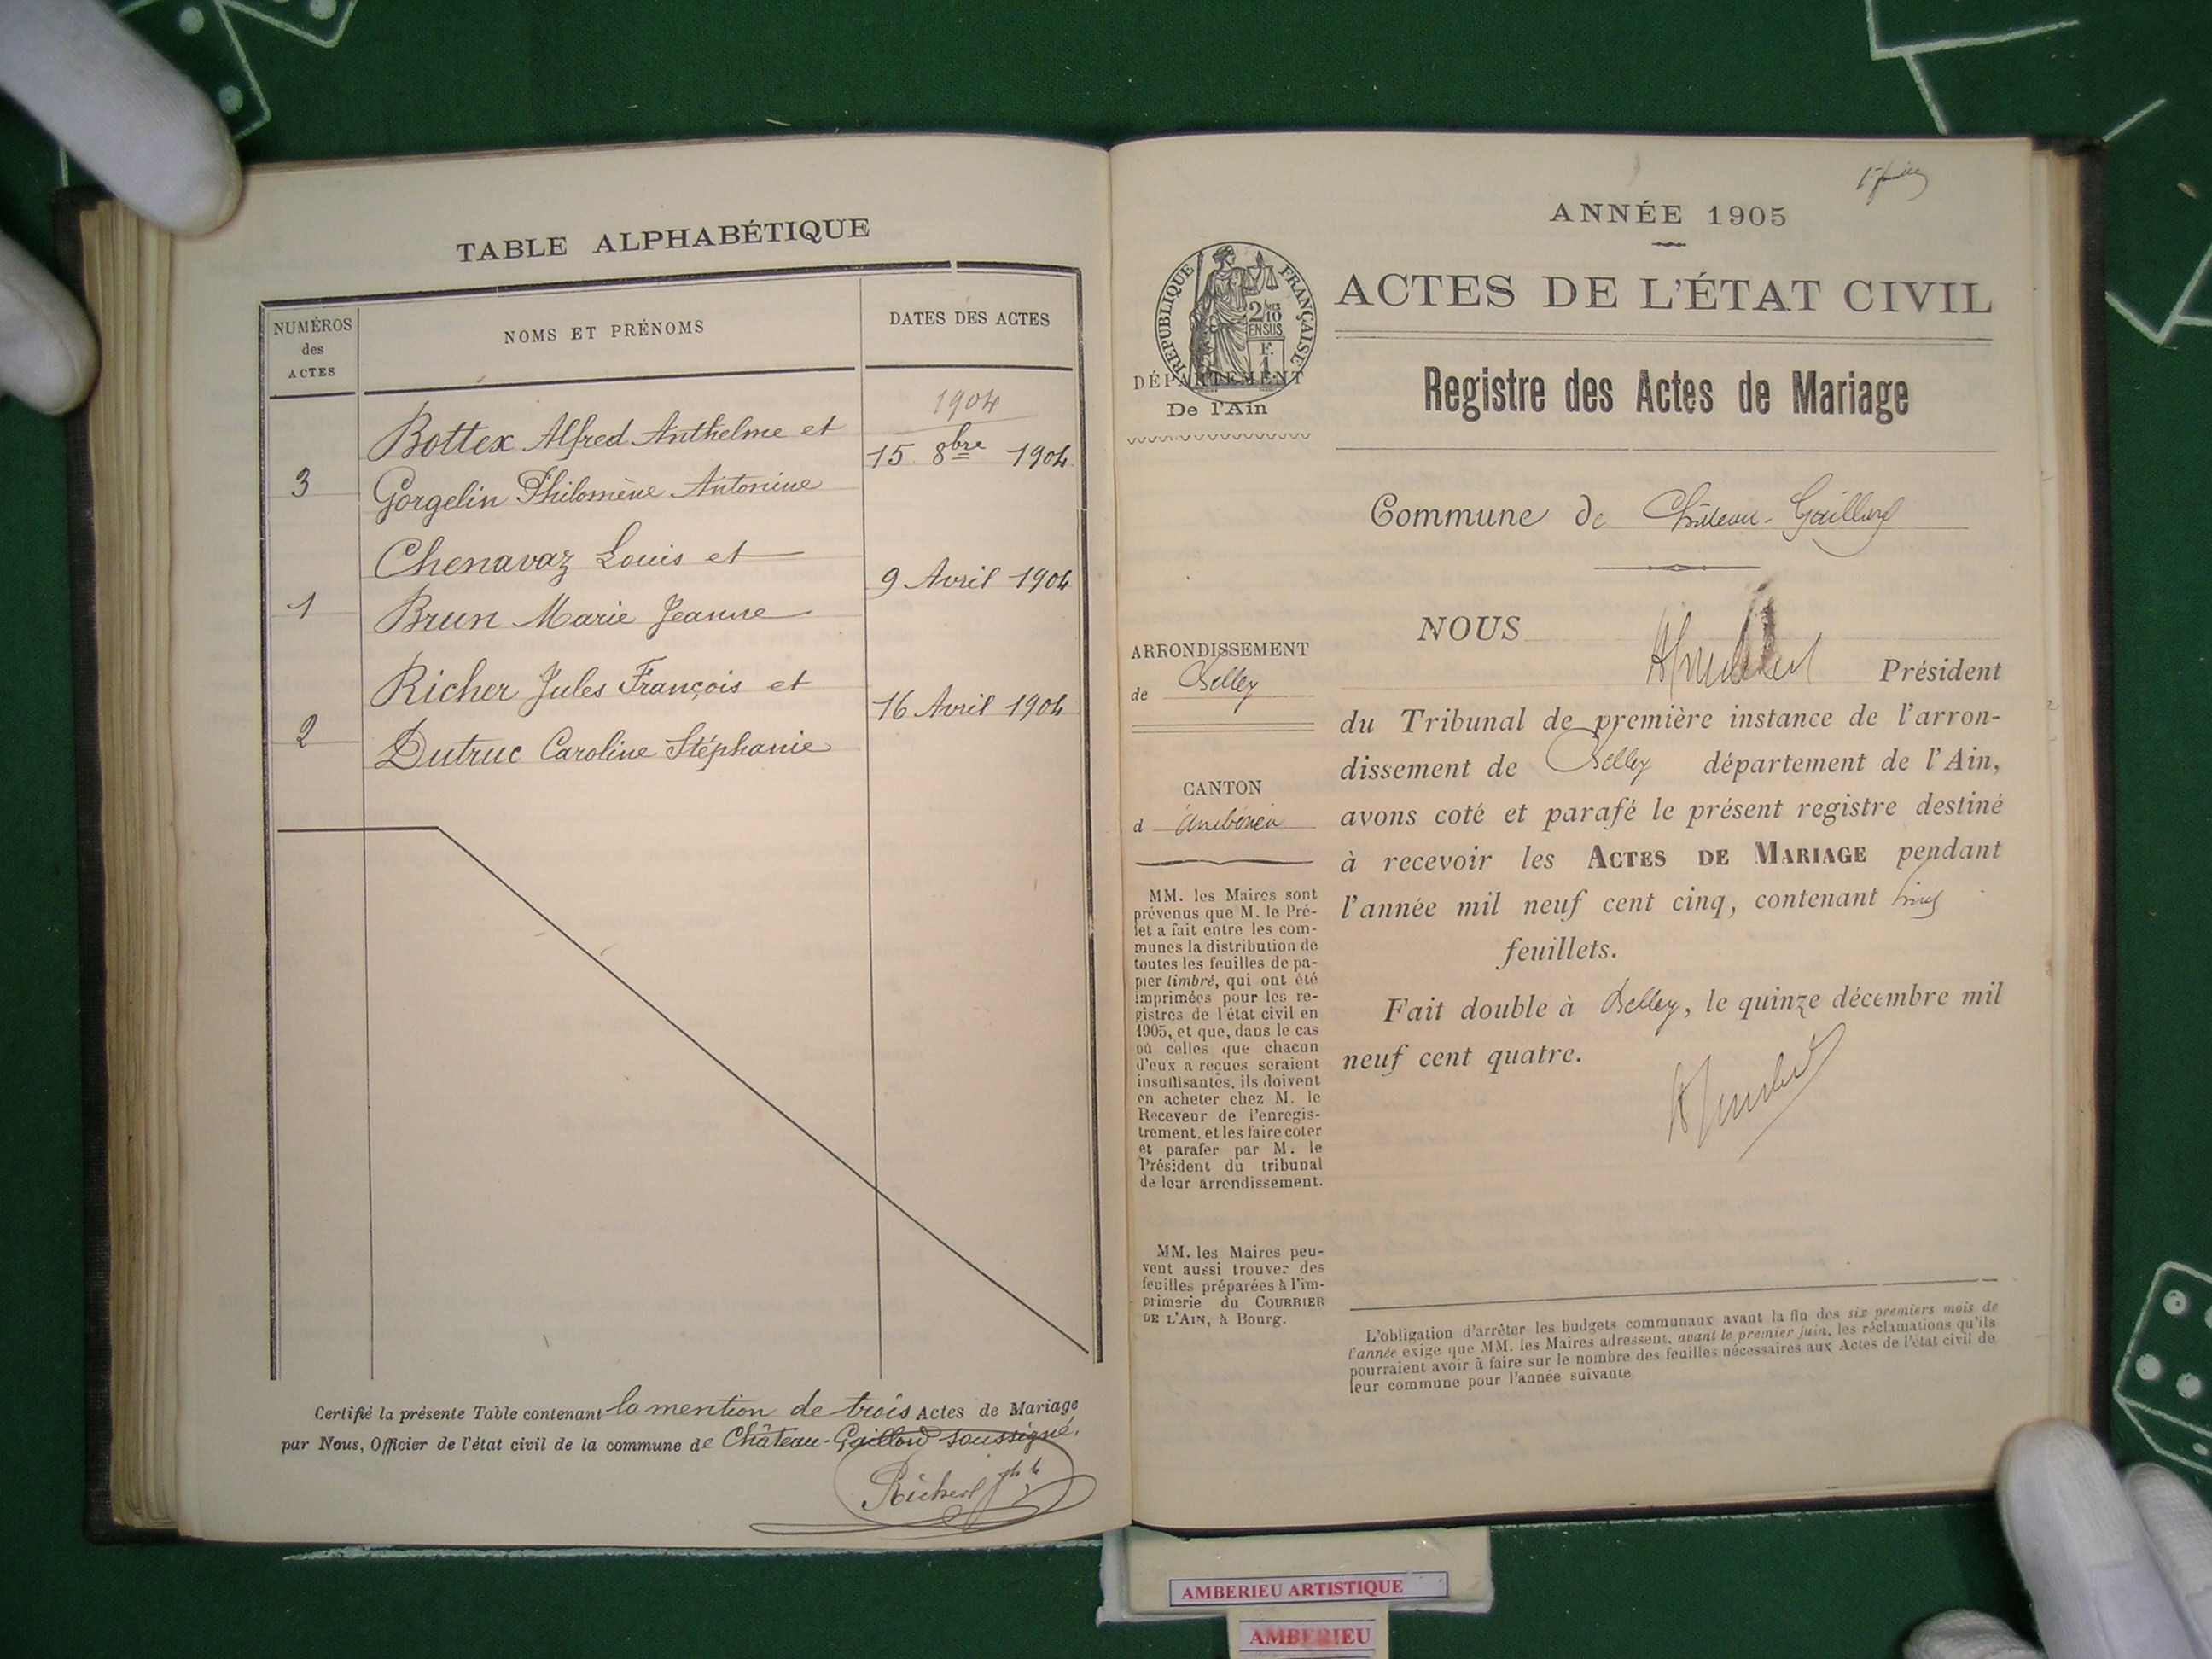 TABLE ALPHABÉTIQUE
NUMÉROS
des
ACTES
NOMS ET PRÉNOMS
DATES DES ACTES
1904
3
Bottex Alfred Anthelme et
Gorgelin Philomène Antonine
15 8bre 1904
1
Chenavaz Louis et
Brun Marie Jeanne
9 Avril 1904
2
Richer Jules François et
Dutruc Caroline Stéphanie
16 Avril 1904
Certifié la présente Table contenant la mention de trois Actes de Mariage
par Nous, Officier de l'état civil de la commune de Château-Gaillard soussigné.
ANNÉE 1905
RÉPUBLIQUE FRANÇAISE
2/10
EN SUS
F.
1
DÉPARTEMENT
De l'Ain
ACTES DE L'ÉTAT CIVIL
Registre des Actes de Mariage
Commune de Château-Gaillard
ARRONDISSEMENT
de Belley
CANTON
d Ambérieu
MM. les Maires sont
prévenus que M. le Pré-
fet a fait entre les com-
munes la distribution de
toutes les feuilles de pa-
pier timbré, qui ont été
imprimées pour les re-
gistres de l'état civil en
1905, et que, dans le cas
où celles que chacun
d'eux a reçues seraient
insuffisantes, ils doivent
en acheter chez M. le
Receveur de l'enregis-
trement, et les faire coter
et parafer par M. le
Président du tribunal
de leur arrondissement.
MM. les Maires peu-
vent aussi trouver des
feuilles préparées à l'im-
primerie du COURRIER
DE L'AIN, à Bourg.
NOUS
Président
du Tribunal de première instance de l'arron-
dissement de Belley département de l'Ain,
avons coté et parafé le présent registre destiné
à recevoir les ACTES DE MARIAGE pendant
l'année mil neuf cent cinq, contenant cinq
feuillets.
Fait double à Belley, le quinze décembre mil
neuf cent quatre.
L'obligation d'arrêter les budgets communaux avant la fin des six premiers mois de
l'année exige que MM. les Maires adressent, avant le premier juin, les réclamations qu'ils
pourraient avoir à faire sur le nombre des feuilles nécessaires aux Actes de l'état civil de
leur commune pour l'année suivante
AMBERIEU ARTISTIQUE
AMBERIEU